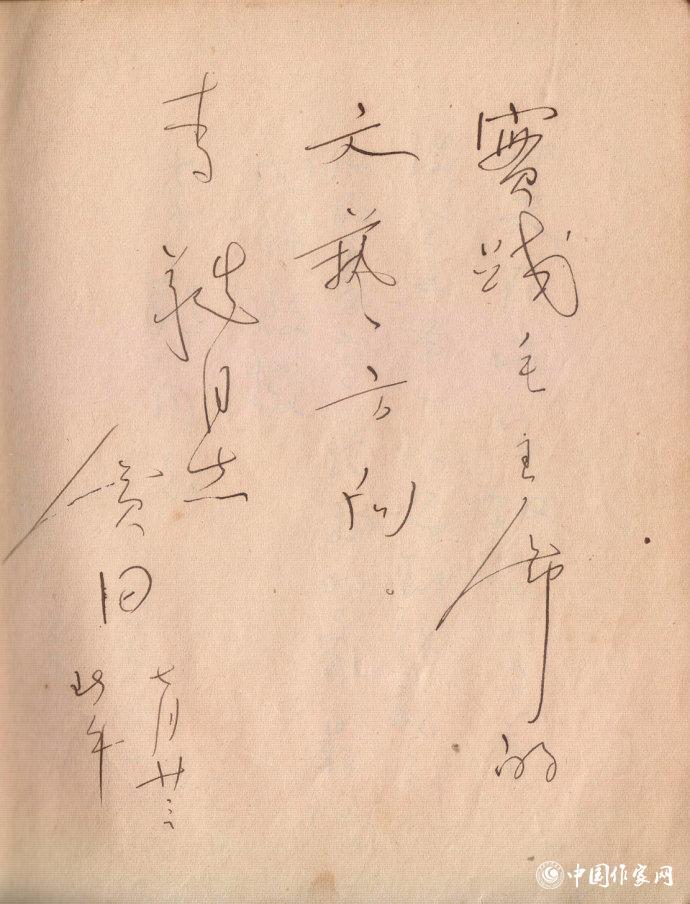 實踐毛主席的
文藝方向。
青 同志
七月廿三
北平
中国作家网